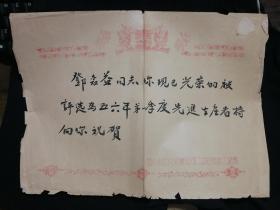 邓名益同志你现已光荣的被
评选为五六年第一季度先进生产者特
向你祝贺